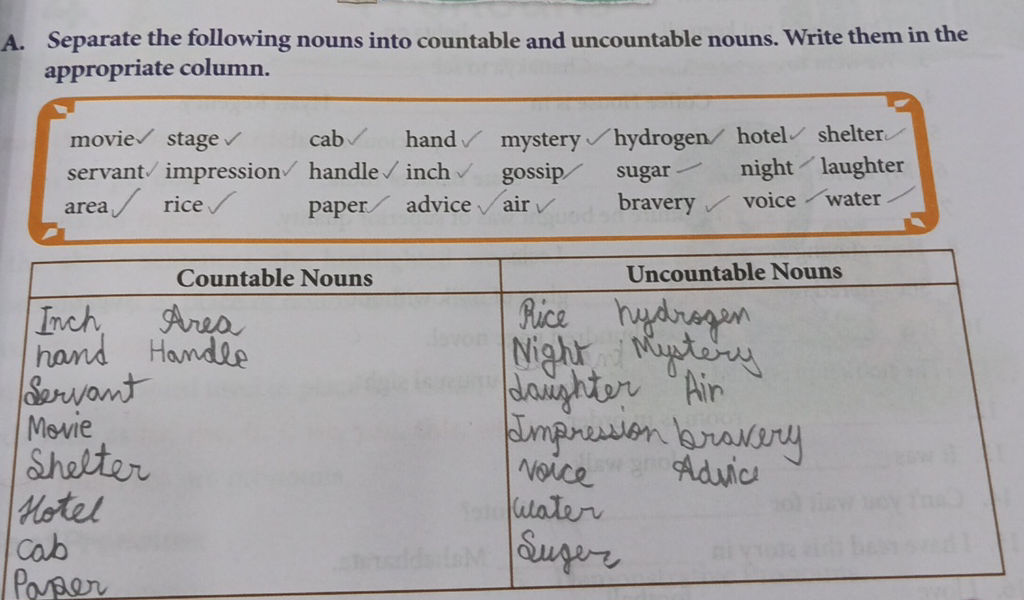 A. Separate the following nouns into countable and uncountable nouns. Write them in the
appropriate column.
movie stage cab hand mystery hydrogen hotel shelter
servant impression handle inch gossip sugar night laughter
area rice paper advice air bravery voice water
Countable Nouns Uncountable Nouns
Inch Area Rice hydrogen
hand Handle Night Mystery
Servant Laughter Air
Movie Impression bravery
Shelter Voice Advice
Hotel Water
Cab Suger
Paper